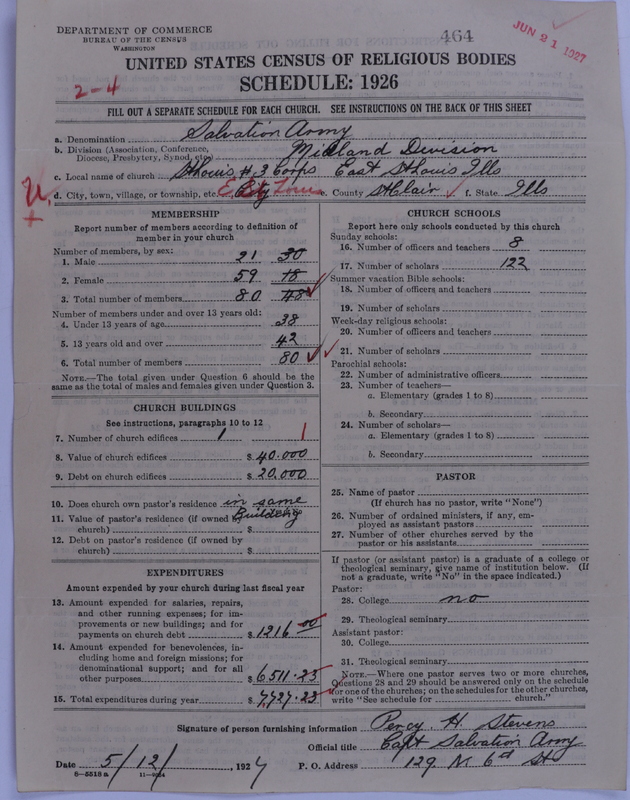 DEPARTMENT OF COMMERCE
BUREAU OF THE CENSUS
WASHINGTON
464
JUN 21 1927
UNITED STATES CENSUS OF RELIGIOUS BODIES
SCHEDULE: 1926
2-4
FILL OUT A SEPARATE SCHEDULE FOR EACH CHURCH. SEE INSTRUCTIONS ON THE BACK OF THIS SHEET
a. Denomination Salvation Army
b. Division (Association, Conference, Diocese, Presbytery, Synod, etc.) Midland Division
c. Local name of church St Louis # 3 Corps East St Louis Ills
U d. City, town, village, or township, etc. City e. County St Clair f. State Ills
MEMBERSHIP
Report number of members according to definition of member in your church
Number of members, by sex:
1. Male 21 30
2. Female 59 18
3. Total number of members 80 48
Number of members under and over 13 years old:
4. Under 13 years of age 38
5. 13 years old and over 42
6. Total number of members 80
NOTE.—The total given under Question 6 should be the same as the total of males and females given under Question 3.
CHURCH BUILDINGS
See instructions, paragraphs 10 to 12
7. Number of church edifices 1 1
8. Value of church edifices $ 40.000
9. Debt on church edifices $ 20.000
10. Does church own pastor's residence in same Building
11. Value of pastor's residence (if owned by church) $
12. Debt on pastor's residence (if owned by church) $
EXPENDITURES
Amount expended by your church during last fiscal year
13. Amount expended for salaries, repairs, and other running expenses; for improvements or new buildings; and for payments on church debt $ 1216.00
14. Amount expended for benevolences, including home and foreign missions; for denominational support; and for all other purposes $ 6511.23
15. Total expenditures during year $ 7727.23
CHURCH SCHOOLS
Report here only schools conducted by this church
Sunday schools:
16. Number of officers and teachers 8
17. Number of scholars 122
Summer vacation Bible schools:
18. Number of officers and teachers
19. Number of scholars
Week-day religious schools:
20. Number of officers and teachers
21. Number of scholars
Parochial schools:
22. Number of administrative officers
23. Number of teachers—
a. Elementary (grades 1 to 8)
b. Secondary
24. Number of scholars—
a. Elementary (grades 1 to 8)
b. Secondary
PASTOR
25. Name of pastor
(If church has no pastor, write "None")
26. Number of ordained ministers, if any, employed as assistant pastors
27. Number of other churches served by the pastor or his assistants
If pastor (or assistant pastor) is a graduate of a college or theological seminary, give name of institution below. (If not a graduate, write "No" in the space indicated.)
Pastor:
28. College no
29. Theological seminary
Assistant pastor:
30. College
31. Theological seminary
NOTE.—Where one pastor serves two or more churches, Questions 28 and 29 should be answered only on the schedule for one of the churches; on the schedules for the other churches, write "See schedule for church."
Signature of person furnishing information Percy H Stevens
Official title Capt Salvation Army
Date 5/12/, 1927 P. O. Address 129 N 6d St
8-5518 a